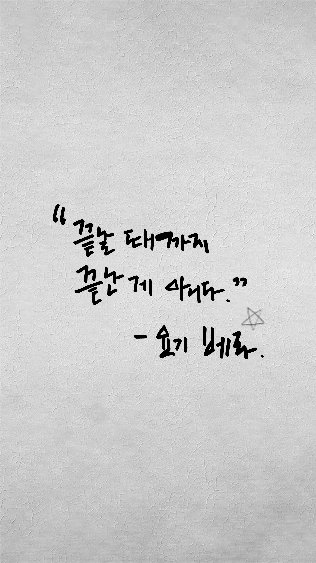 “끝날 때까지
끝난 게 아니다.”
- 요기 베라.